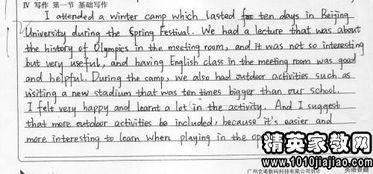 IV 写作 第一节 基础写作
I attended a winter camp which lasted for ten days in Beijing
University during the Spring Festival. We had a lecture that was about
the history of Olympics in the meeting room, and it was not so interesting
but very useful, and having English class in the meeting room was good
and helpful. During the camp, we also had outdoor activities such as
visiting a new stadium that was ten times bigger than our school.
I felt very happy and learnt a lot in the activity. And I suggest
that more outdoor activities be included, because it's easier and
more interesting to learn when playing in the
精英家教网
www.1010jiajiao.com